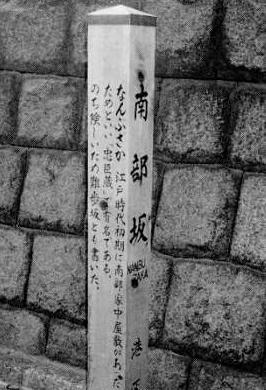 南部坂
NANBU
ZAKA
港区
なんぶざか 江戸時代初期に南部家中屋敷があった
ためといい、忠臣蔵で有名である。
のち険しいため難歩坂とも書いた。